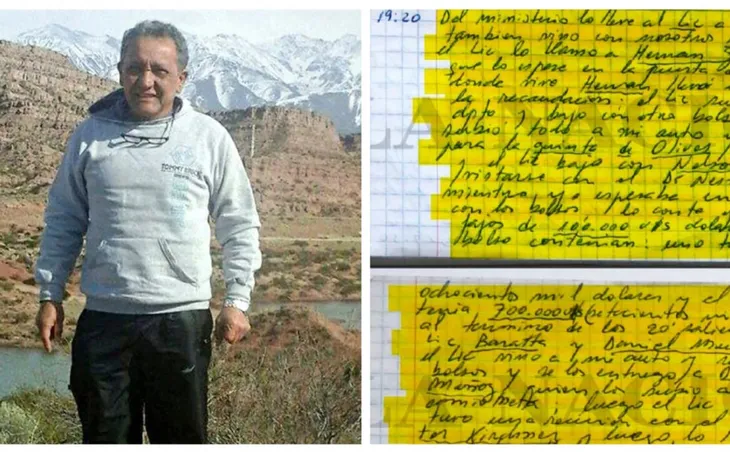 TOMMY
19:20 Del ministerio lo lleve al Lic a
tambien vino con nosotros
el Lic lo llamo a Hernan
que lo espere en la puerta
donde vivo Hernan, llevo
la recaudacion: el Lic
dpto y bajo con otro bols
subio todo a mi auto y
para la quinta de Olivos
el Lic bajo con Nelson
juntarse con el Dr Nes
mientras yo esperaba en
con los bolsos, los conte
fajos de 100.000 U$S dolar
bolso contenian: uno
ochocientos mil dolares y el
tenia 700.000 U$S (setecientos mi
al termino de los 20
Lic Baratta y Daniel Mu
el Lic vino a mi auto y
bolsos y se los entrego a D
Muñoz, quien los subio a
camioneta; luego el Lic
tuvo una reunion con el
tor Kirchner y luego, lo
LA NACI